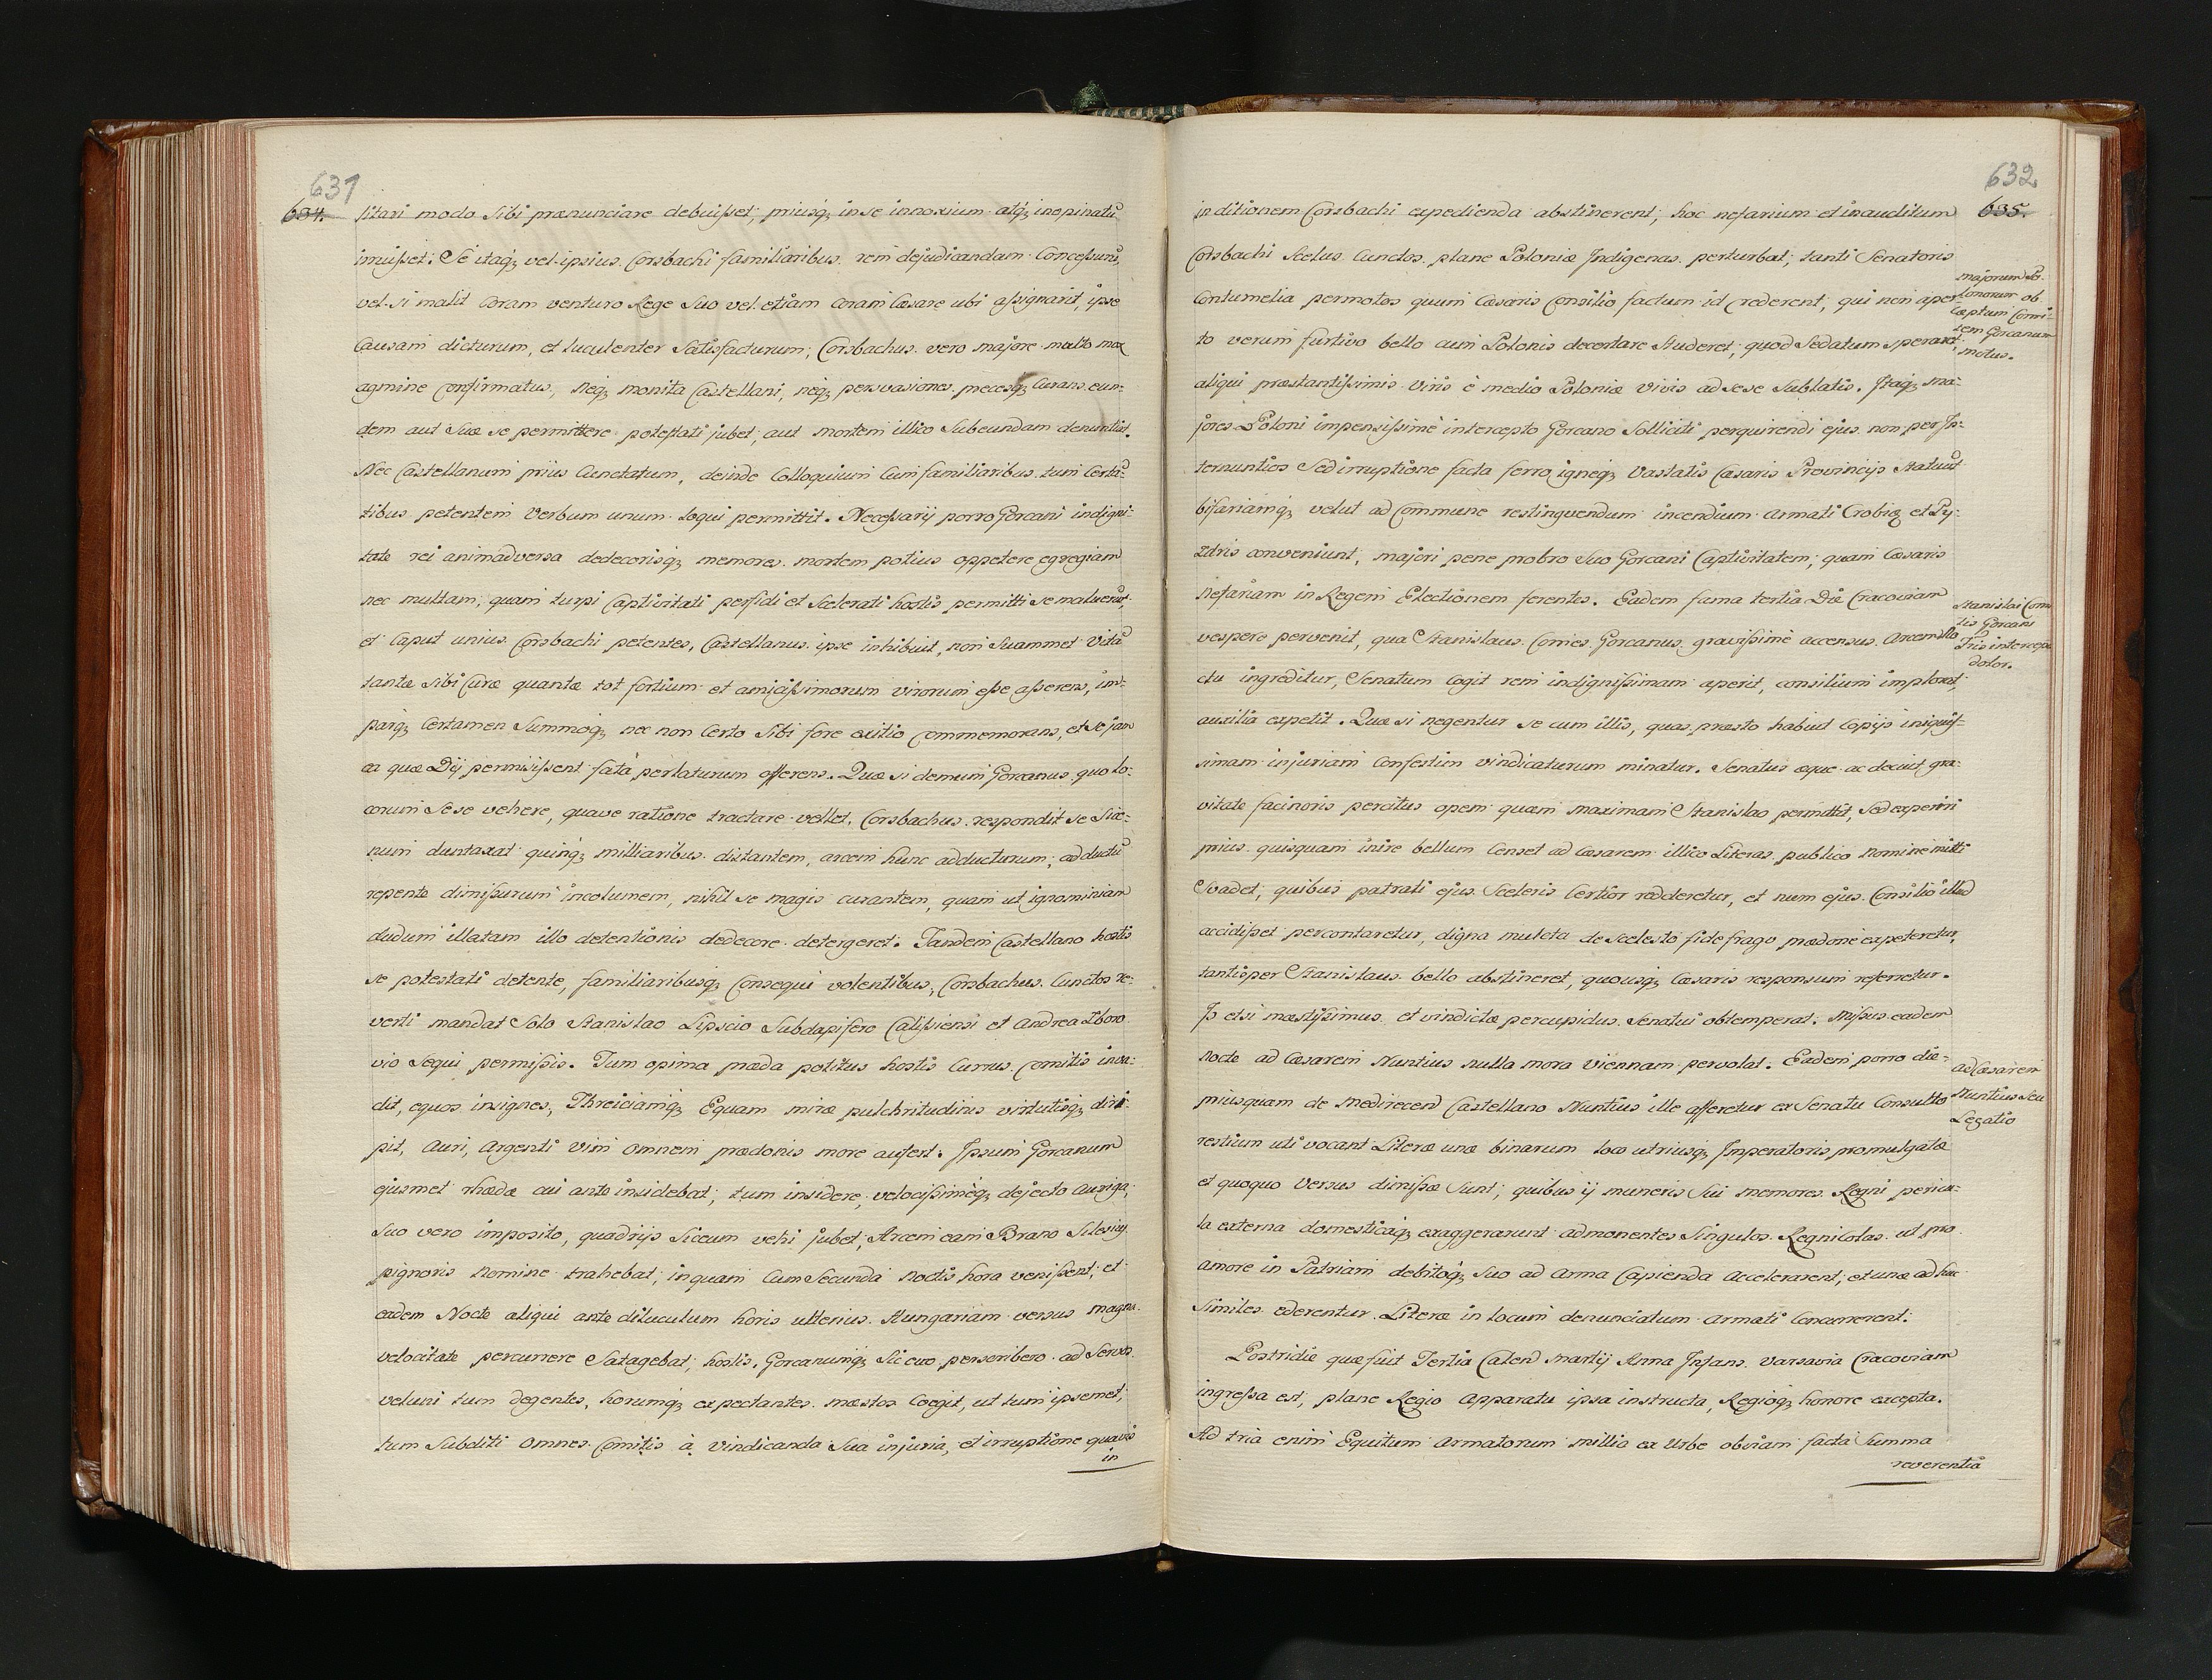 631
634.
litari modo sibi prænunciare debuisset, priusq; in se innoxium atq; inopinatũ
irruisset: Se itaq; vel ipsius Corsbachi familiaribus rem dejudicandam Concessurũ,
vel si malit Coram venturo Rege suo vel etiam coram Cæsare ubi assignarit, ipse
Causam dicturum, et luculenter Satisfacturum; Corsbachus vero majore multo mox
agmine confirmatus, neq; monita Castellani, neq; persvasiones precesq; Curans eun-
dem aut suæ se permittere potestati jubet, aut mortem illico Subeundam denuntiat.
Nec Castellanum prius Cunctatum, deinde Colloquium Cum familiaribus tum Certã-
tibus petentem Verbum unum loqui permittit. Necessarij porro Gorcani indigni-
tate rei animadversa dedecorisq; memores mortem potius oppetere egregiam
nec multam, quam turpi Captivitati perfidi et Scelerati hostis permitti se maluerũt,
et Caput unius Corsbachi petentes, Castellanus ipse inhibuit, non Suammet Vitã
tantæ sibi Curæ quantæ tot fortium et amicissimorum virorum esse asserens, im-
parq; Certamen Summoq; nec non Certo Sibi fore exitio commemorans, et se jam
ea quæ Dij permisissent fata perlaturum asserens. Quæ si demum Gorcanus, quo lo-
corum Sese vehere, quave ratione tractare vellet, Corsbachus respondit se Sice-
num duntaxat quinq; milliaribus distantem, arcem hunc adducturum, adductũ
repente dimissurum incolumem, nihil se magis curantem, quam ut ignominiam
dudum illatam illo detentionis dedecore detergeret. Tandem Castellano hostis
se potestati detente, familiaribusq; Consequi volentibus, Corsbachus Cunctos re-
verti mandat Solo Stanislao Lipscio Subdapifero Calissiensi et Andrea Zboro
vio Sequi permissis. Tum opima præda potitus hostis Currus Comitis inva-
dit, equos insignes, Threiciamq; Equam miræ pulchritudinis virtutisq; diri-
pit, Auri, Argenti Vim omnem prædonis more aufert. Ipsum Gorcanum
ejusmet rhædæ cui ante insidebat, tum insidere, velocissimeq; dejecto Auriga,
Suo vero imposito, quadrijs Siceum vehi jubet, Arcem eam Brano Silesius
pignoris Nomine trahebat, in quam Cum Secunda Noctis hora venissent, et
eadem Nocte aliqui ante diluculum horis ulterius Hungariam versus magna
velocitate percurrere Satagebat, hostis, Gorcanumq; Siceuo perscribere ad Servos
veluni tum degentes, horumq; expectantes mæstos Coegit, ut tum ipsemet,
tum Subditi omnes Comitis à vindicanda Sua injuria, et irruptione quavis
in
632
635.
in ditionem Corsbachi expedienda abstinerent, hoc nefarium et inauditum
Corsbachi Scelus Cunctos plane Poloniæ Indigenas perturbat, tanti Senatoris
Contumelia permotos quum Cæsaris Consilio factum id crederent, qui non aper-
to verum furtivo bello cum Polonis decertare Studeret, quod Sedatum speraret,
aliqui præstantissimis viris è medio Poloniæ vivis ad sese Sublatis. Itaq; ma-
jores Poloni impensissimè intercepto Gorcano Solliciti perquirendi ejus non per In-
ternuntios Sed irruptione facta ferro igneq; Vastatis Cæsaris Provincijs Statuũt
bifariamq; velut ad Commune restinguendum incendium armati Crobiæ et Py-
zdris conveniunt, majori pene probro Suo Gorcani Captivitatem, quam Cæsaris
Nefariam in Regem Electionem ferentes. Eadem fama tertia Die Cracoviam
vespere pervenit, qua Stanislaus Comes Gorcanus gravissimè accensus Arcem illo
ctu ingreditur, Senatum Cogit rem indignissimam aperit, consilium implorat,
auxilia expetit. Quæ si negentur se cum illis, quas præsto habuit Copijs iniquis-
simam injuriam Confestim vindicaturum minatur. Senatus æque ac decuit gra-
vitate facinoris percitus opem quam maximam Stanislao permittit, Sed experiri
prius quisquam inire bellum Censet ad Cæsarem illico Literas publico Nomine mitti
Svadet, quibus patrati ejus Sceleris Certior redderetur, et num ejus Consilio illud
accidisset percontaretur, digna mulcta de Scelesto fidefrago prædone expeteretur,
tantisper Stanislaus bello abstineret, quousq; Cæsaris responsum referretur.
Is etsi mæstissimus et vindictæ percupidus Senatui obtemperat. Missus eadem
Nocte ad Cæsarem Nuntius nulla mora Viennam pervolat. Eadem porro die
priusquam de Medirecens Castellano Nuntius ille afferetur ex Senatu Consulto
restium uti vocant Literæ unæ binarum loco utriusq; Imperatoris promulgatæ
et quoquo Versus dimissæ Sunt, quibus ij muneris Sui memores Regni pericu-
la externa domesticaq; exaggerarunt admonentes Singulos Regnicolas ut pro
amore in Patriam debitoq; Suo ad Arma Capienda Accelerarent, et unæ ad huc
Similes ederentur Literæ in locum denunciatum armati Concurrerent.
Postridie quæ fuit Tertia Calend Martij Anna Infans Varsavia Cracoviam
ingressa est, plane Regio Apparatu ipsa instructa, Regioq; honore excepta.
Ad tria enim Equitum Armatorum millia ex Urbe obviam facta Summa
reverentia
majorum Po-
lonorum ob
Captum Comi-
tem Gorcanum
motus.
Stanislai Comi
tis Gorcani
Fris intercep
dolor.
ad Cæsarem
Nuntius seu
Legatio